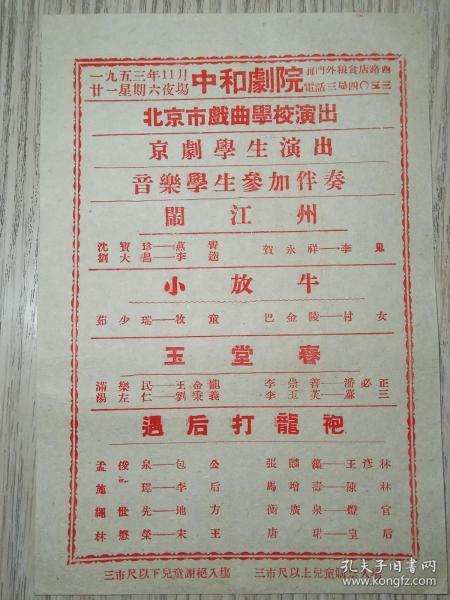 一九五三年11月
廿一星期六夜場
中和劇院
前門外粮食店路西
電話三局四〇三三
北京市戲曲學校演出
京劇學生演出
音樂學生參加伴奏
鬧江州
沈寶珍——燕青 賀永祥——李鬼
劉大昌——李逵
小放牛
茹少瑞——牧童 巴金陵——村女
玉堂春
滿樂民——王金龍 李崇善——潘必正
湯左仁——劉秉義 李玉芙——蘇三
遇后打龍袍
孟俊泉——包公 張麟藻——王彥林
施璋——李后 馬增壽——陳林
繩世先——地方 衡廣泉——燈官
林懋榮——宋王 唐珉——皇后
三市尺以下兒童謝絕入場 三市尺以上兒童購票入場
孔夫子旧书网